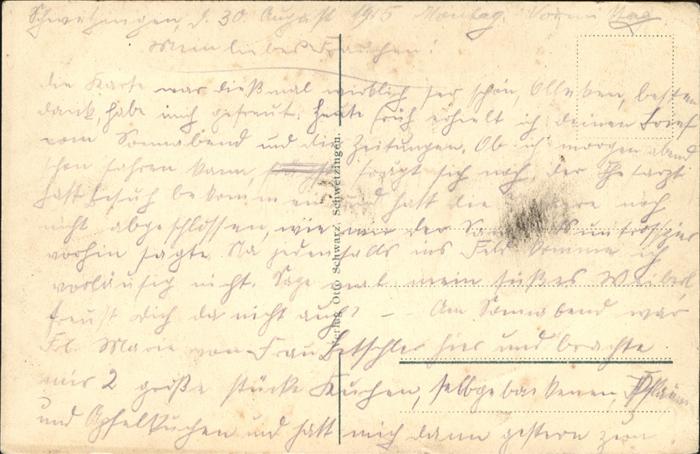 Schwetzingen, d. 30. August 1915 Montag. Vorm
Mein liebes Frauchen!
die Karte war dießmal wirklich ser schön, besten
dank, habe mich gefreut, heute früh erhielt ich deinen Brief
vom Sonnabend und die Zeitungen. Ob ich morgen abend
schon fahren kann, frägt sich noch, der
hatt besuch bekommen und hatt die noch
nicht abgeschlossen, wie mir der
vorhin sagte. Na jedenfalls ins Feld komme ich
vorläufig nicht. Sage mal mein süßes Weiberl
freust dich da nicht auch? - - Am Sonnabend war
Frl. Marie von Frau Betschler hier und brachte
mir 2 große stücke Kuchen, selbgebackenen,
und Apfelkuchen und hatt mich dann gestern zum
Verlag Otto Schwarz, Schwetzingen.